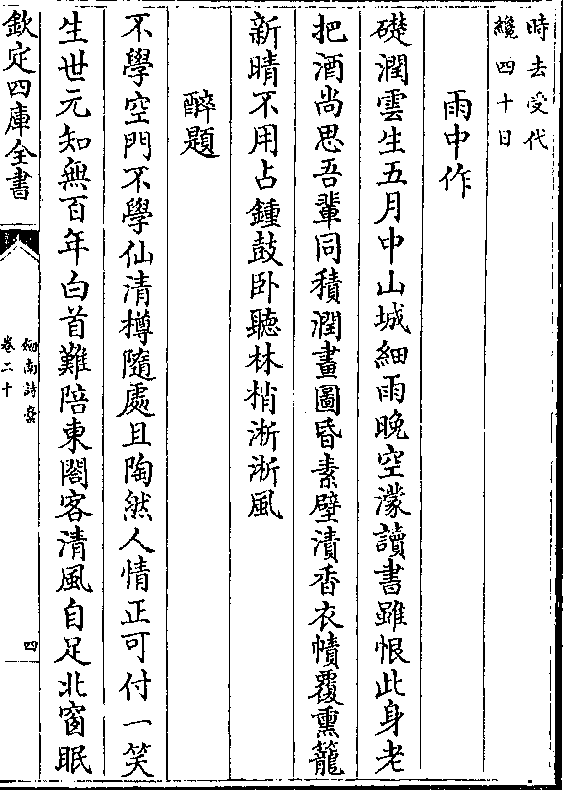 時去受代
纔四十日
雨中作
礎潤雲生五月中山城細雨晚空濛讀書雖恨此身老
把酒尚思吾輩同積潤畫圖昏素壁漬香衣幘覆熏籠
新晴不用占鍾鼓卧聽林梢淅淅風
醉題
不學空門不學仙清樽隨處且陶然人情正可付一笑
生世元知無百年白首難陪東閣客清風自足北窗眠
欽定四庫全書
劒南詩藁
卷二十
四